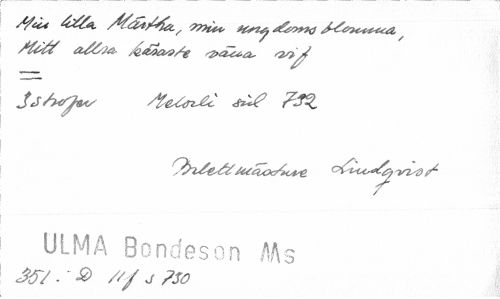 Min lilla Märtha, min ungdoms blomma,
Mitt allra käraste väna vif
=
3 strofer Melodi sid 792
Balettmästare Lindqvist
ULMA Bondeson Ms
351: D 11 f s 790